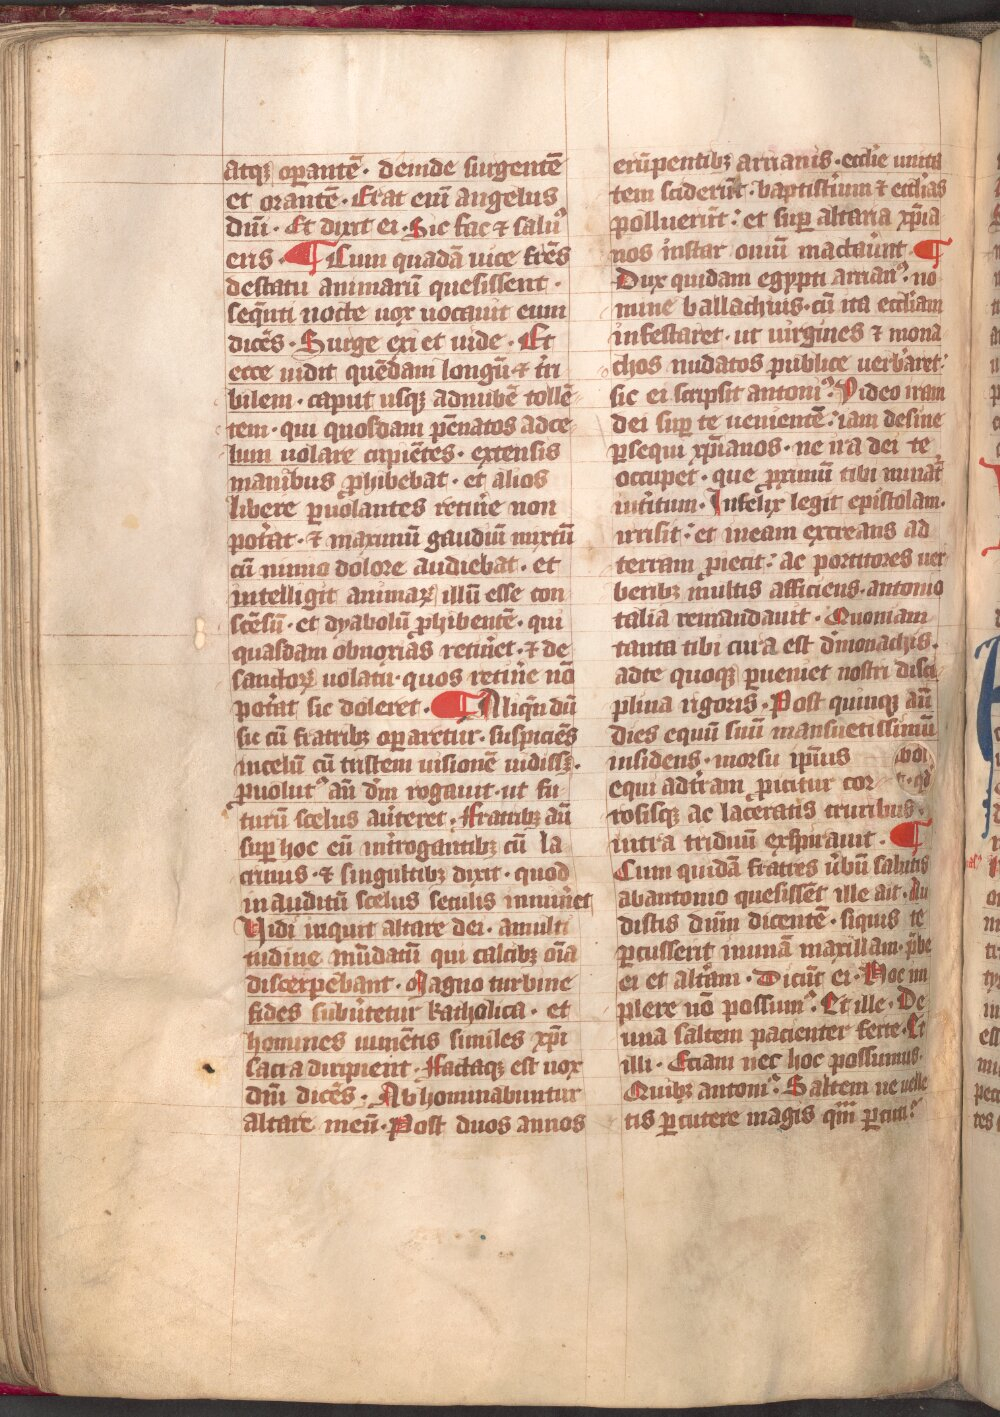 atqꝫ oꝑantē · deinde surgentē
et orantē · Erat eni̅ angelus
dn̅i · Et dixit ei · Sic fac ⁊ saluꝰ
eris · ¶ Cum quadā uice fr̅es
destatu animarū quesissent ·
seq̅nti nocte uox uocauit eum
dicēs · Surge exi et uide · Et
ecce uidit quēdam longū ⁊ t̅ri
bilem · caput usqꝫ adnubē tollē
tem · qui quosdam pēnatos adce
lum uolare cupiētes · extensis
manibus ꝓhibebat · et alios
libere ꝑuolantes retin̅e non
pot̅at · ⁊ maximū gaudiū mixtū
cū nimio dolore audiebat · et
intelligit animaꝝ illū esse con
scēsū · et dyabolū ꝓhibentē · qui
quasdam obnoxias retin̅et · ⁊ de
sanctoꝝ uolatu · quos retin̅e nō
pot̅at sic doleret · ¶ Aliqn̅ dū
sic cū fratribꝫ oꝑaretur · suspiciēs
incelū cū tristem uisionē uidissꝫ ·
ꝓuolutꝰ aū dn̅m rogauit · ut fu
turū scelus au̅teret · Fratribꝫ aū
suꝑ hoc eū int̅rogantibꝫ cū la
crimis · ⁊ singultibꝫ dixit · quod
inauditū scelus seculis inmin̅et
Vidi inquit altare dei · amulti
tudine ium̅datū qui calcibꝫ oīa
discerpebant · Magno turbine
fides subu̅tetur katholica · et
homines iumētis similes xp̅i
sacra diripient · Factaqꝫ est uox
dn̅i dicēs · Abhominabuntur
altare meū · Post duos annos
erūpentibꝫ arrianis · ecclie unita
tem sciderūt · baptisterium ⁊ eccl̅ias
polluerūt : et suꝑ altaria xp̅ia
nos instar ouiū mactau̅nt · ¶
Dux quidam egypti arrianꝰ · no
mine ballachius · cū ita eccl̅iam
infestaret · ut uirgines ⁊ mona
chos nudatos publice uerb̅aret :
sic ei scripsit antoniꝰ : Video iram
dei suꝑ te uenientē : iam desine
ꝑsequi xp̅ianos · ne ira dei te
occupet · que ꝓximū tibi minat̅
int̅itum · Infelix legit epistolam ·
irrisit : et in eam excreans ad
terram ꝓiecit : ac portitores uer
beribꝫ multis afficiens · antonio
talia remandauit · Quoniam
tanta tibi cura est d̅monachis ·
adte quoqꝫ ꝑueniet nostri disci
plina rigoris · Post quinqꝫ aū
dies equū suū mansuetissimū
insidens · morsu ipsius
equi adt̅ram ꝓicitur cor
rosisqꝫ ac laceratis cruribus ·
intra triduū exspirauit · ¶
Cum quidā fratres u̅bū salutis
abantonio quesissēt ille ait · Au
distis dn̅m dicentē · siquis te
ꝑcusserit inunā maxillam · p̅be
ei et alt̅am · Dicūt ei · Hoc im
plere nō possumꝰ · Et ille · De
una saltem pacienter ferte · Et
illi · Etiam nec hoc possumus ·
Quibꝫ antoniꝰ · Saltem ne uelle
tis ꝑcutere magis qm̅ ꝑcuti :